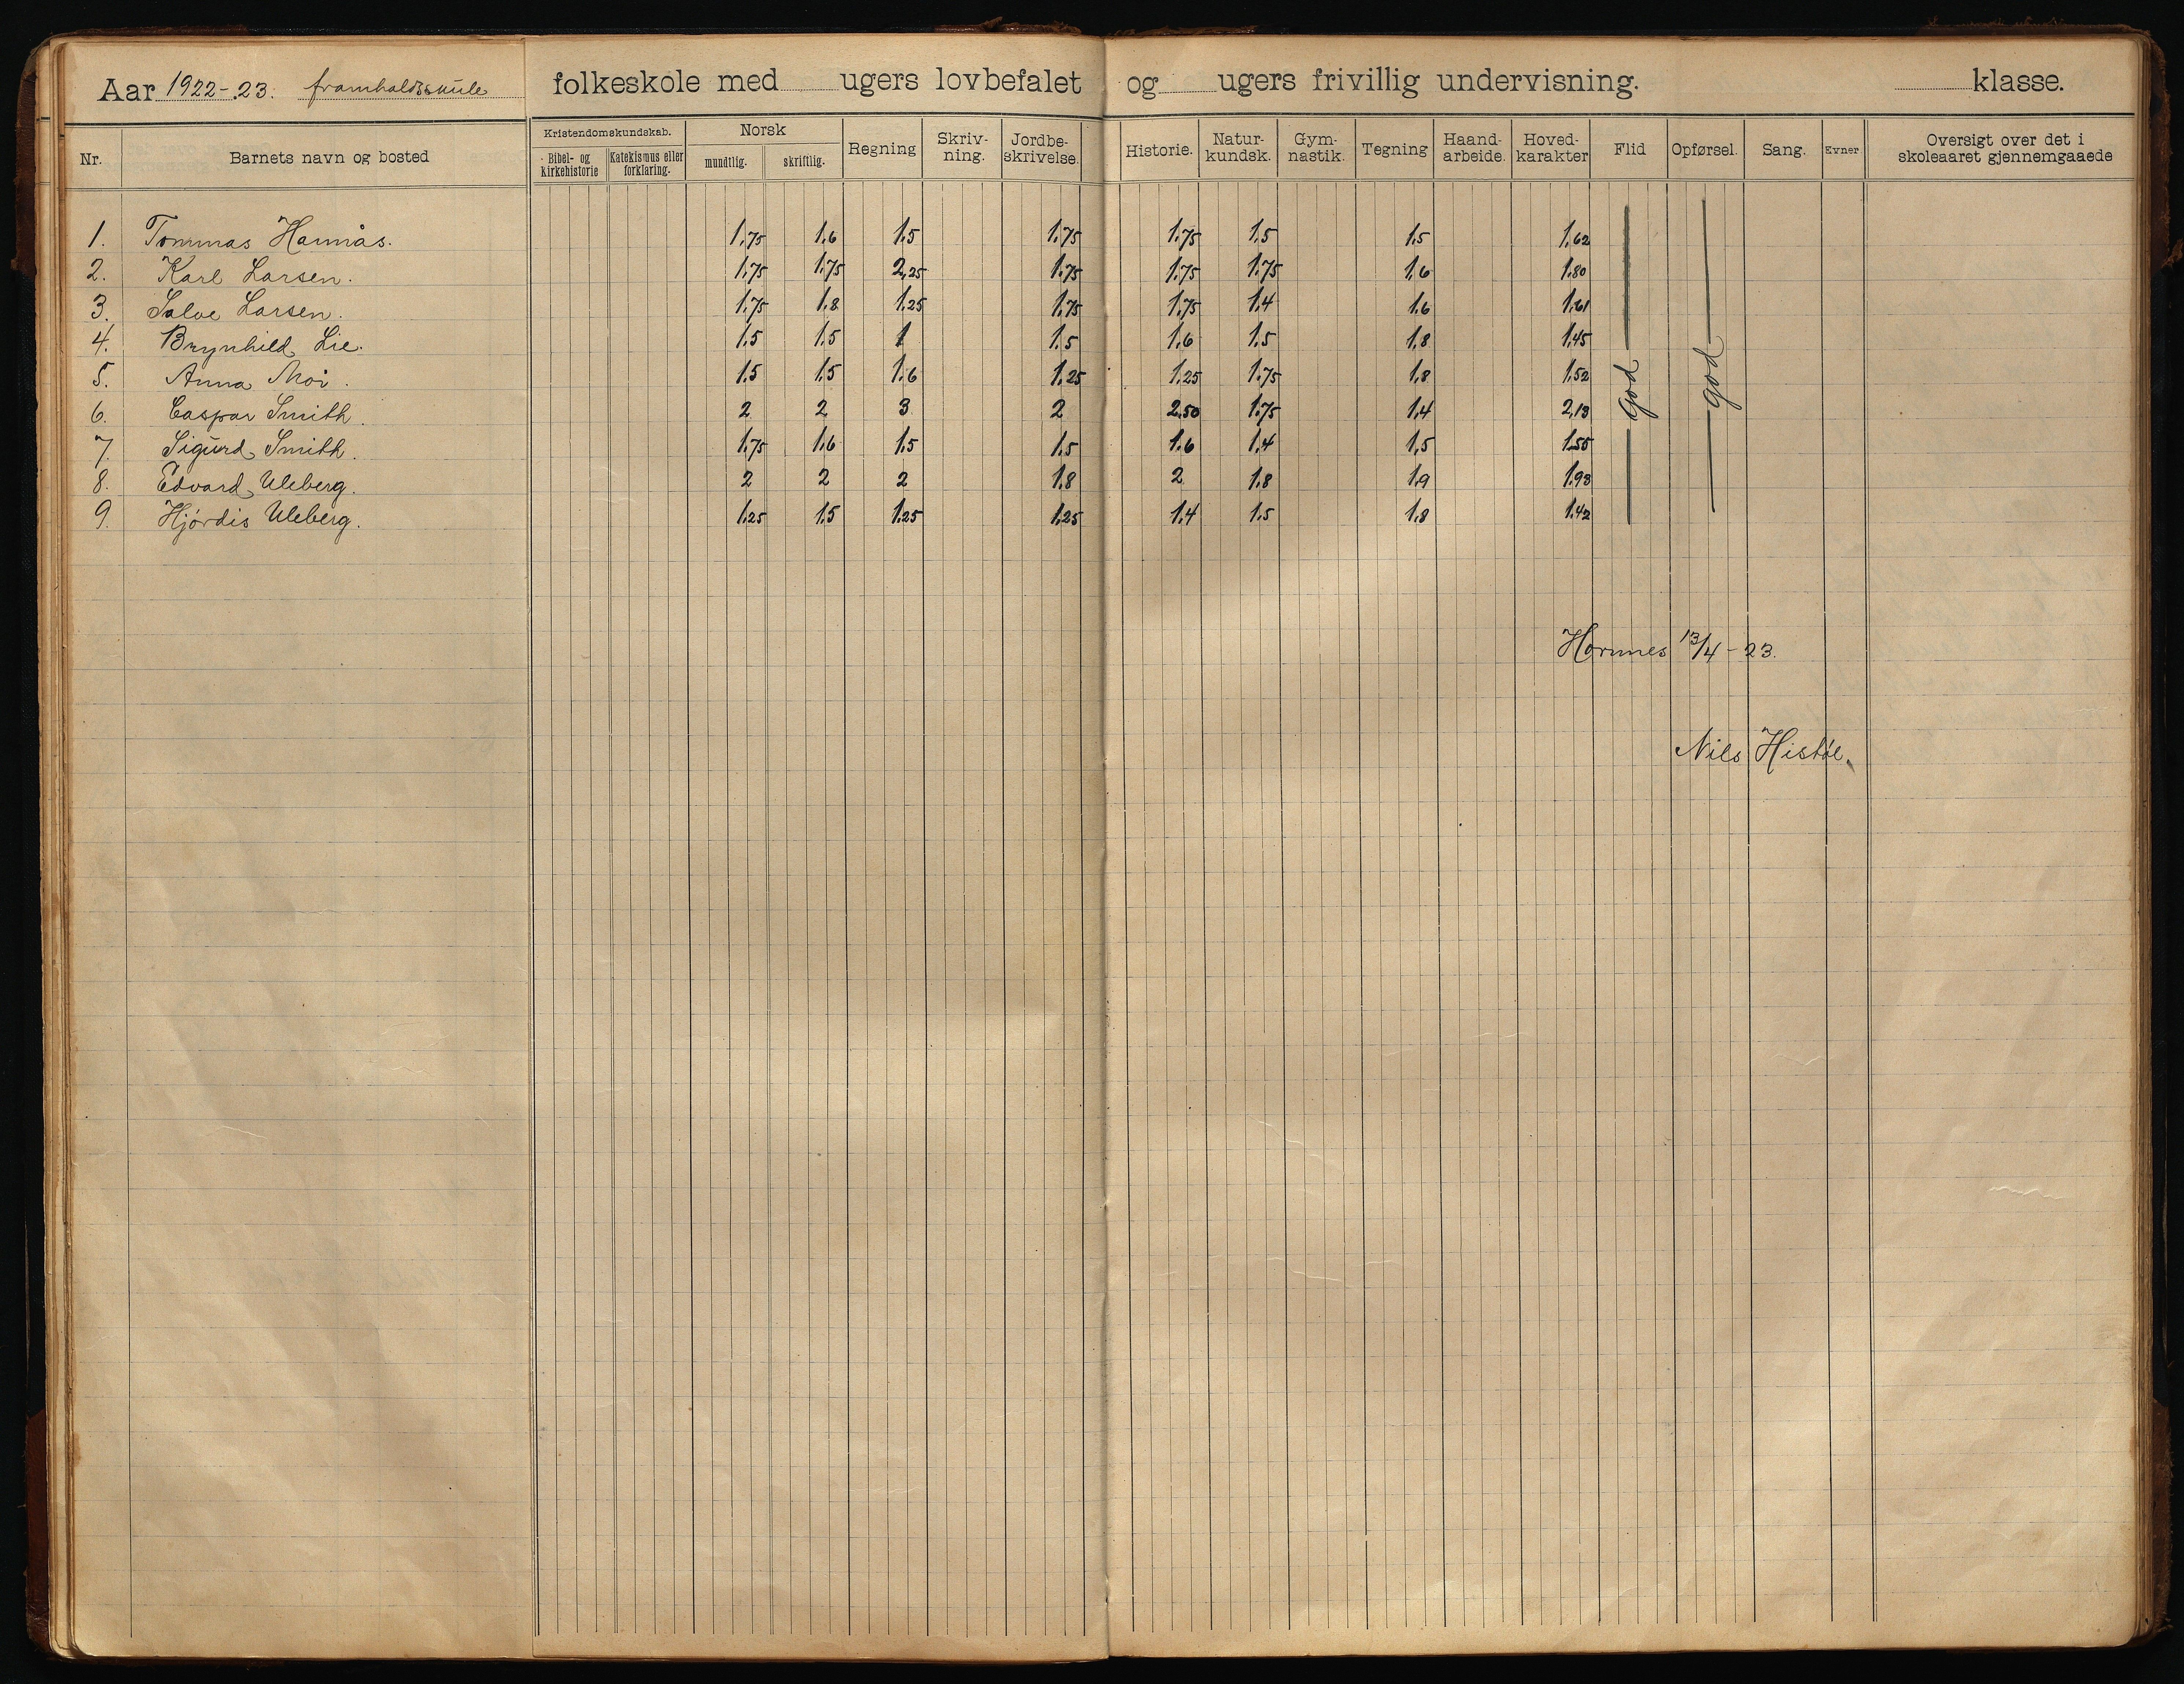 Aar 1922-23. framhaldsskule folkeskole med ugers lovbefalet og ugers frivillig undervisning. klasse.
Nr. Barnets navn og bosted Kristendomskundskab. Bibel- og Kirkehistorie Katekismus eller forklaring. Norsk mundtlig. skriftlig. Regning Skriv-ning. Jordbe-skrivelse. Historie. Natur-kundsk. Gym-nastik. Tegning Haand-arbeide. Hoved-karakter Flid Opførsel. Sang. Evner Oversigt over det i skoleaaret gjennemgaaede
1. Tommas Hannås. 1,75 1,6 1,5 1,75 1,75 1,5 1,5 1,62
2. Karl Larsen. 1,75 1,75 2,25 1,75 1,75 1,75 1,6 1,80
3. Salve Larsen. 1,75 1,8 1,25 1,75 1,75 1,4 1,6 1,61
4. Brynhild Lie. 1,5 1,5 1 1,5 1,6 1,5 1,8 1,45
5. Anna Moi. 1,5 1,5 1,6 1,25 1,25 1,75 1,8 1,52 god god
6. Caspar Smith. 2 2 3 2 2,50 1,75 1,4 2,13
7. Sigurd Smith. 1,75 1,6 1,5 1,5 1,6 1,4 1,5 1,55
8. Edvard Uleberg. 2 2 2 1,8 2 1,8 1,9 1,93
9. Hjórdis Uleberg. 1,25 1,5 1,25 1,25 1,4 1,5 1,8 1,42
Hornnes 13/4-23.
Nils Histøl.